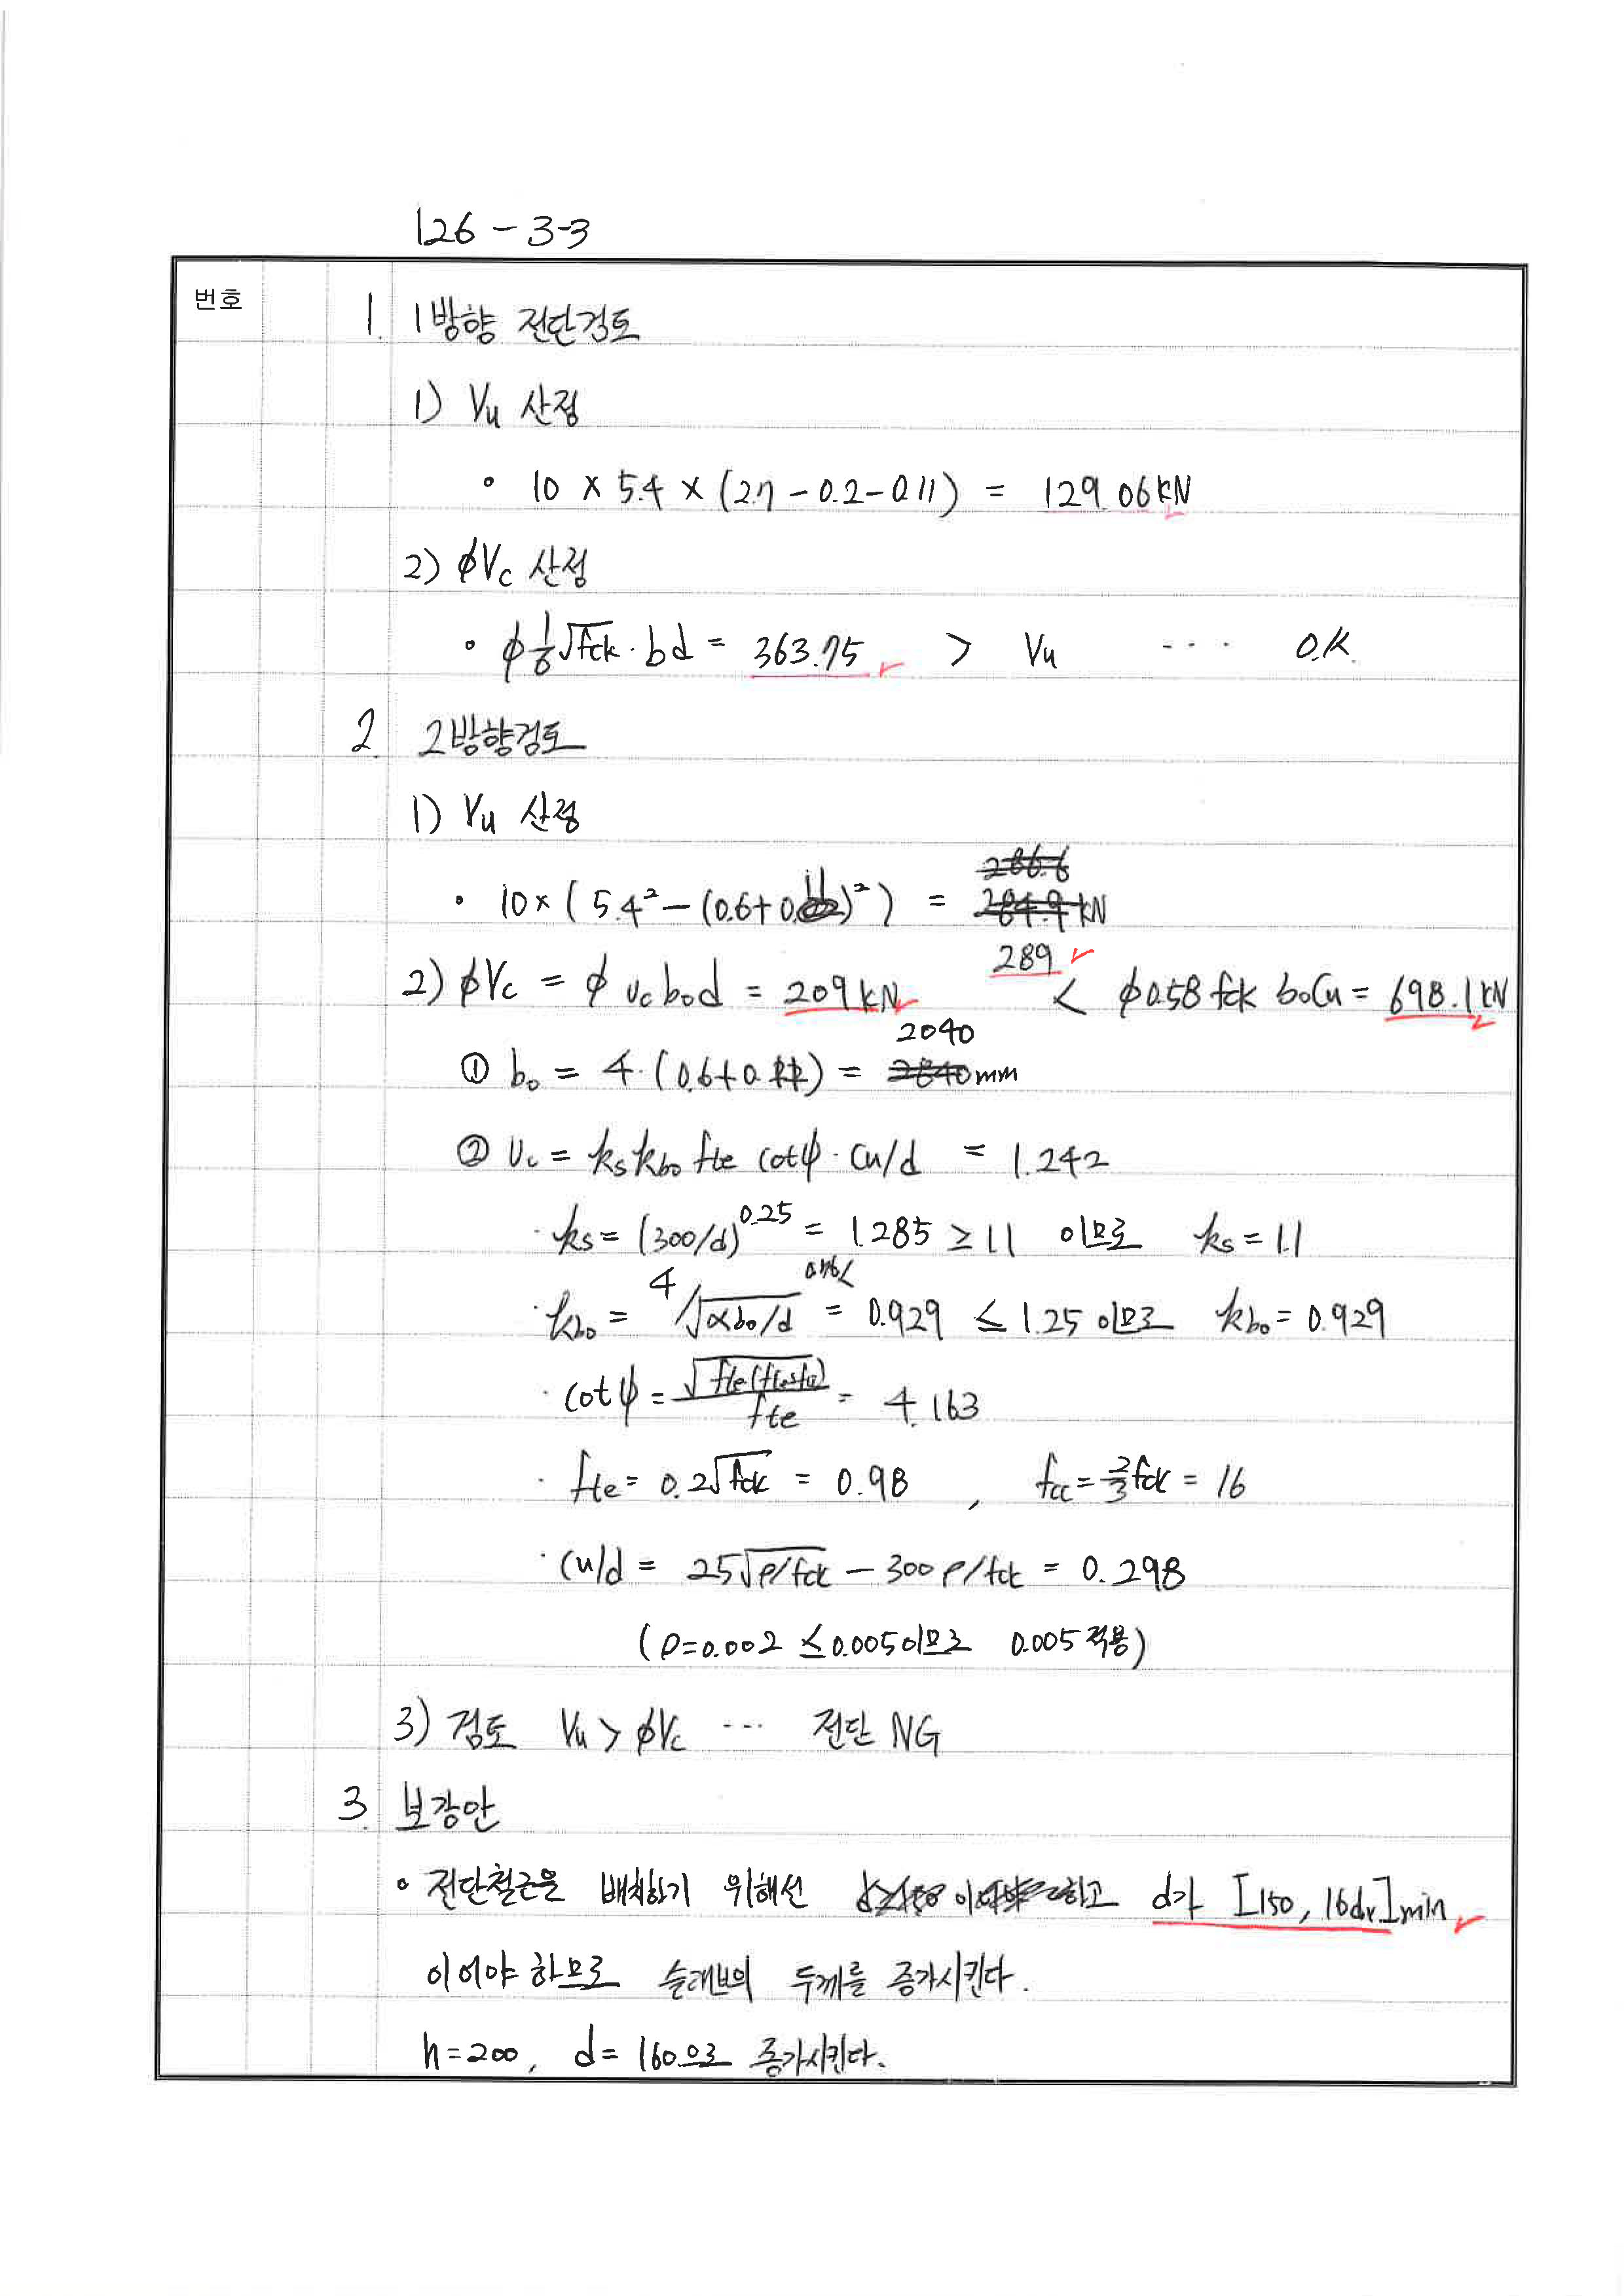 126 - 3-3
번호
1. 1방향 전단검토
1) Vu 산정
• 10 × 5.4 × (2.7 - 0.2 - 0.11) = 129.06 kN
2) ϕVc 산정
• ϕ 1/6 √fck · bd = 363.75 > Vu ... O.K.
2. 2방향검토
1) Vu 산정
• 10 × (5.4² - (0.6+0.11)²) = 289
2) ϕVc = ϕ υc bod = 209 kN < ϕ0.58 fck boCu = 698.1 kN
① bo = 4·(0.6+0. ) = 2040 mm
② υc = ks kbo fte cotψ · cu/d = 1.242
· ks = (300/d)^0.25 = 1.285 ≥ 1.1 이므로 ks = 1.1
· kbo = 4/√(αbo/d) = 0.929 ≤ 1.25 이므로 kbo = 0.929
· cotψ = √(fte(fte+fcc))/fte = 4.163
· fte = 0.2√fck = 0.98 , fcc = 2/3 fck = 16
· cu/d = 25√(ρ/fck) - 300 ρ/fck = 0.298
(ρ=0.002 ≤ 0.005이므로 0.005 적용)
3) 검토 Vu > ϕVc ... 전단 NG
3. 보강안
• 전단철근을 배치하기 위해선 하고 d가 [150, 16dv]min
이어야 하므로 슬래브의 두께를 증가시킨다.
h=200, d=160으로 증가시킨다.